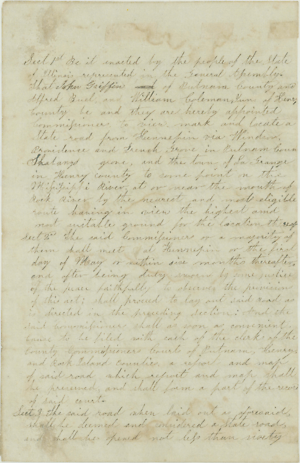 Sect 1st Be it enacted by the people of the State
of Illinois represented in the General Assembly
That John Griffin and of Putnam County and
Alfred Bush and William Coleman, Esqr of Henry
County, be and they are hereby appointed
Commissioners to view mark and locate a
State road from Hennepin via Windsor,
Providence and French Grove in Putnam County
grove, and the town of La Grange
in Henry County to some point on the
Missisippi River, at or near the mouth of
Rock River by the nearest and most eligible
route having in view the highest and
most suitable ground for the location thereof
Sect 2d The said Commissioners or a majority of
them shall meet at Hennepin on the first
day of May or within six months thereafter
and after being duly sworn by some justice
of the peace faithfully to observe the provision
of this act; shall proceed to lay out said road as
is directed in the preceding section; And the
said Commissioners shall as soon as convenient
cause to be filed with each of the clerk of the
County Commissioners courts of Putnam, Henry
and Rock Island Counties a report and map
of said road which report and map shall
be preserved, and shall form a part of the record
of said courts
Sect 3 the said road when laid out as aforesaid
shall be deemed and considered a State road
and shall be opened not less than seventy